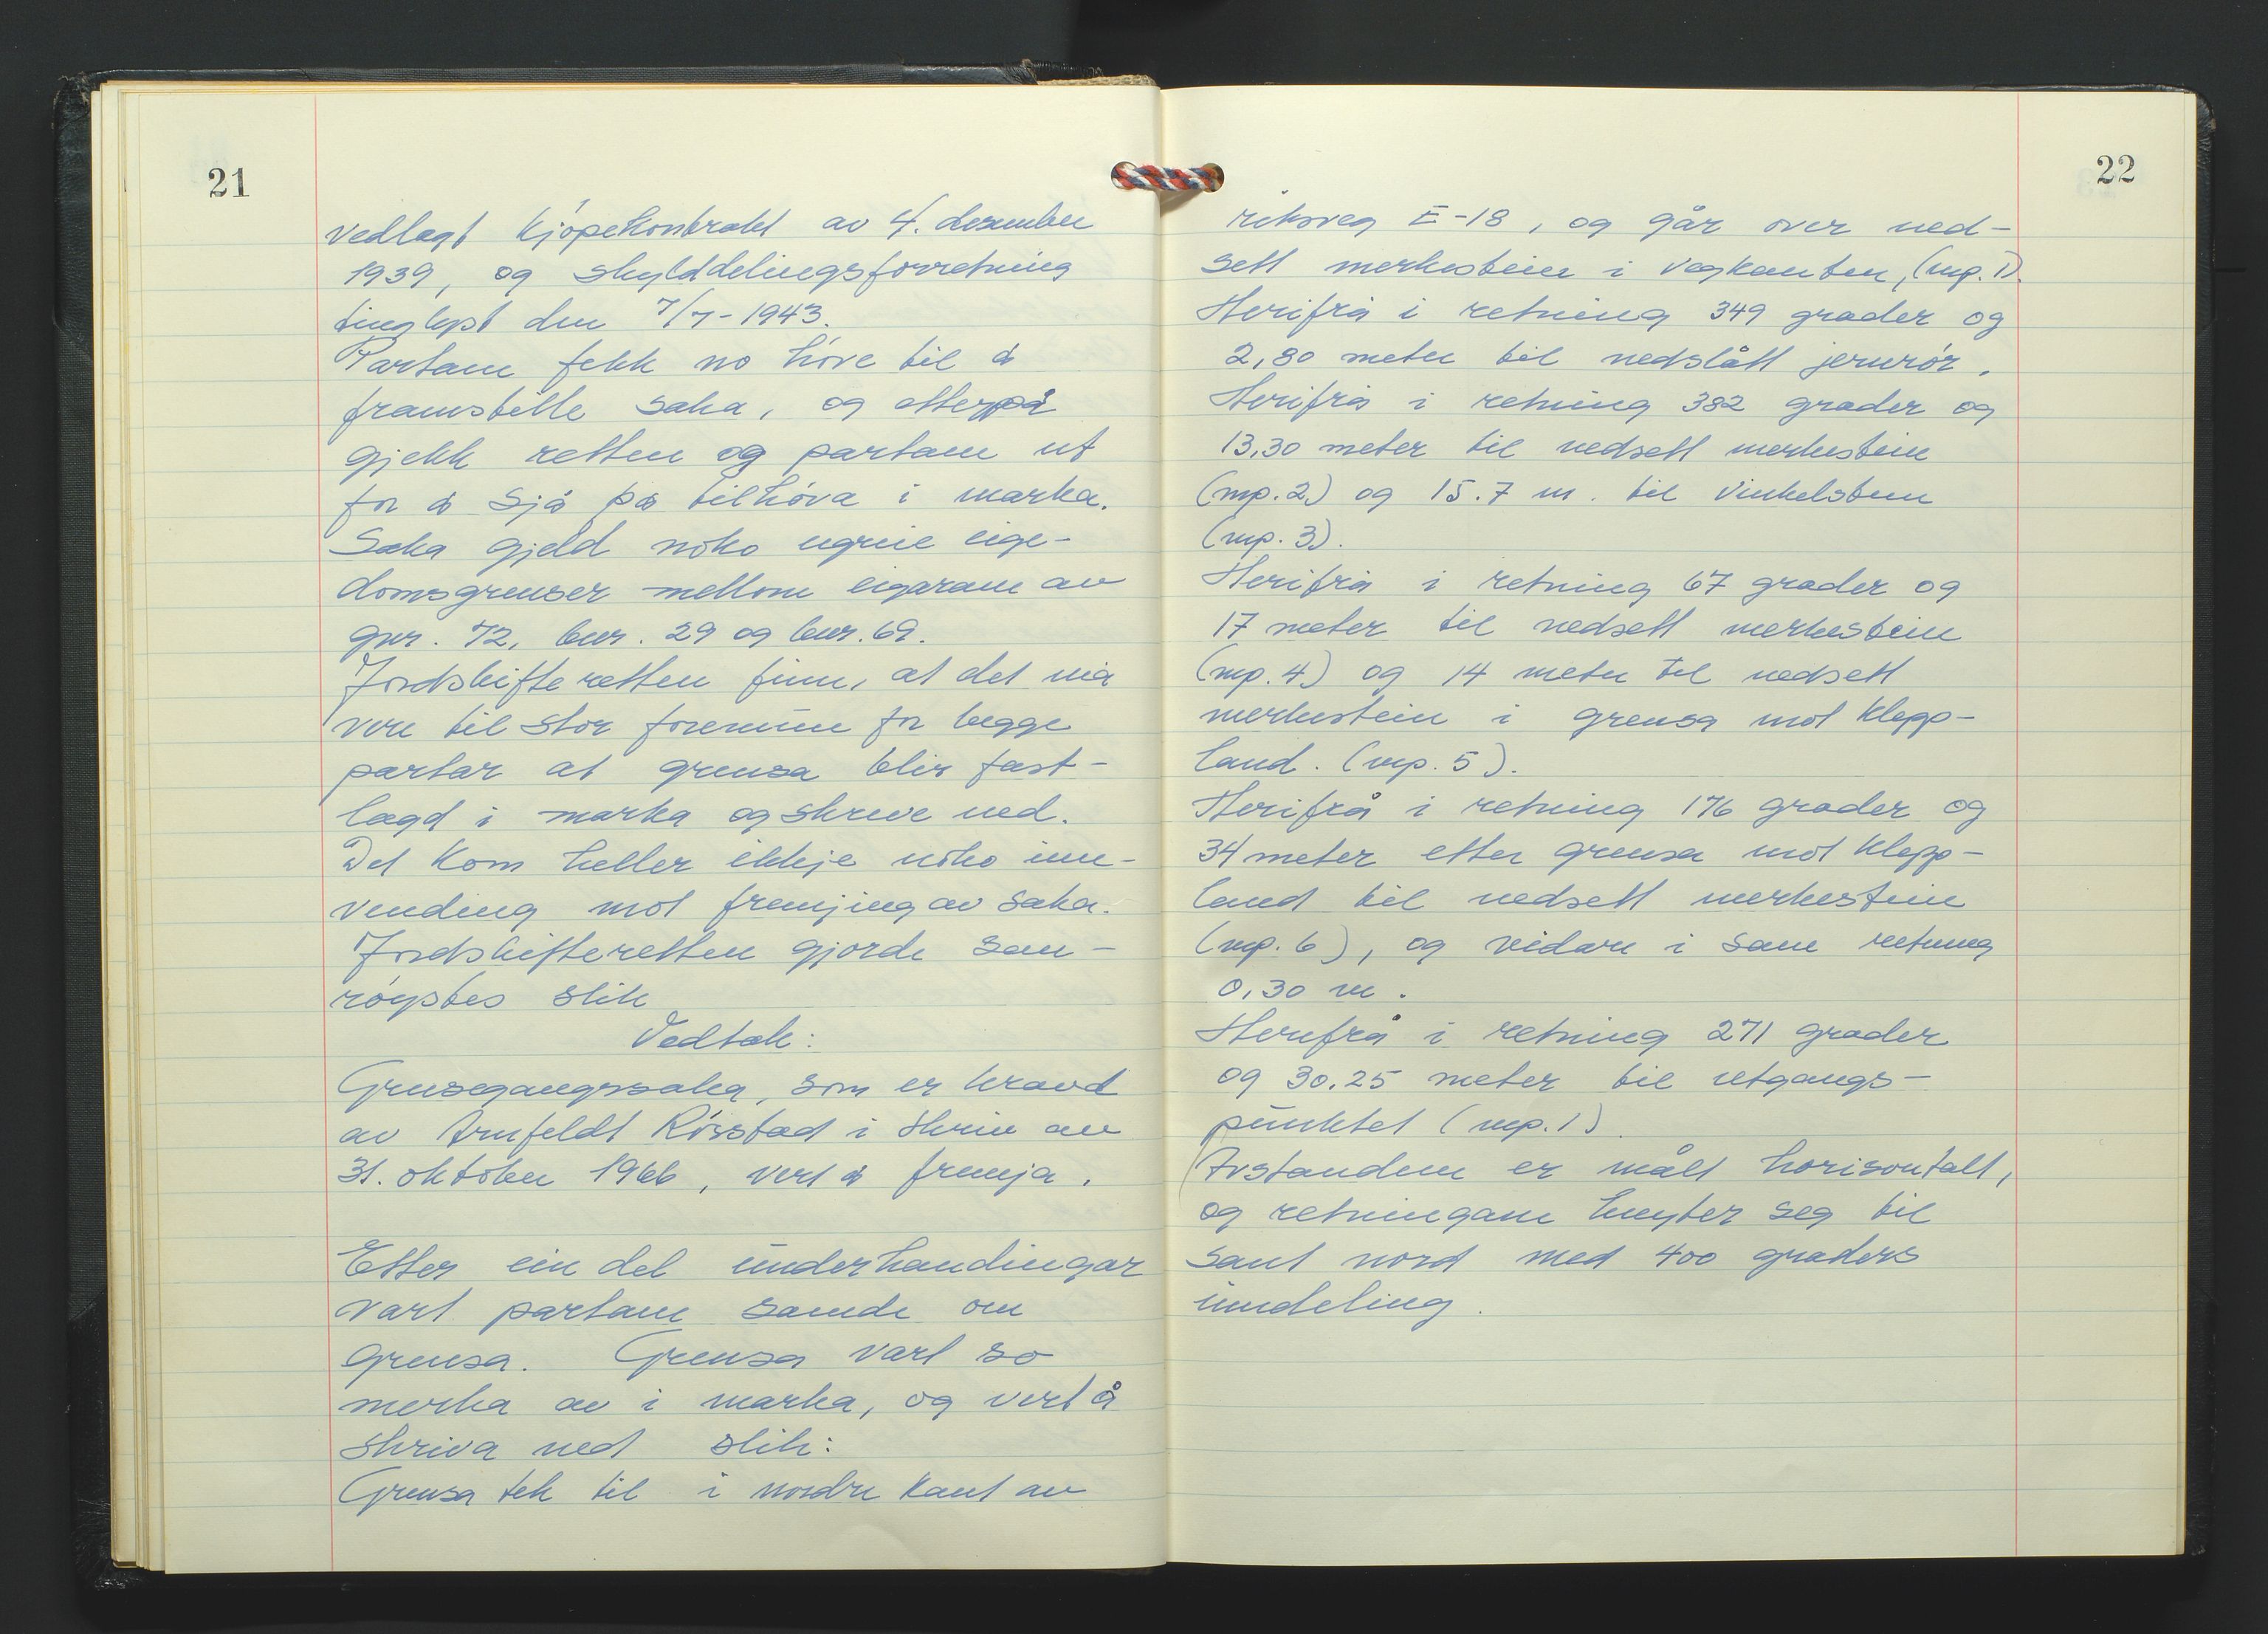 21
vedlagt kjøpekontrakt av 4. desember
1939, og skylddelingsforretning
tinglyst den 7/7-1943.
Partane fekk no høve til å
framstille saka, og etterpå
gjekk retten og partane ut
for å sjå på tilhøva i marka.
Saka gjeld noko ugreie eige-
domsgrenser mellom eigarane av
gnr. 72, bnr. 29 og bnr. 69.
Jordskifteretten finn, at det må
vere til stor foremün for begge
partar at grensa blir fast-
lagd i marka og skreve ned.
Det kom heller ikkje noko inn-
vending mot fremjing av saka.
Jordskifteretten gjorde sam-
røystes slik
Vedtak:
Grensegangssaka, som er kravd
av Arnfeldt Rösstad i skriv av
31. oktober 1966, vert å fremja.
Etter ein del ünderhandlingar
vart partane samde om
grensa. Grensa vart so
merka av i marka, og vert å
skriva ned slik:
Grensa tek til i nordre kant av
22
riksveg E-18, og går over ned-
sett merkestein i vegkanten, (mp. 1).
Herifrå i retning 349 grader og
2,80 meter til nedslått jernrör.
Herifrå i retning 382 grader og
13,30 meter til nedsett merkestein
(mp. 2) og 15.7 m. til vinkelstein
(mp. 3).
Herifrå i retning 67 grader og
17 meter til nedsett merkestein
(mp. 4) og 14 meter til nedsett
merkestein i grensa mot Klepp-
land. (mp. 5).
Herifrå i retning 176 grader og
34 meter etter grensa mot Klepp-
land til nedsett merkestein
(mp. 6), og vidare i same retning
0,30 m.
Herifrå i retning 271 grader
og 30.25 meter til utgangs-
pünktet (mp. 1).
Avstandene er målt horisontalt,
og retningane knyter seg til
sant nord med 400 graders
inndeling.